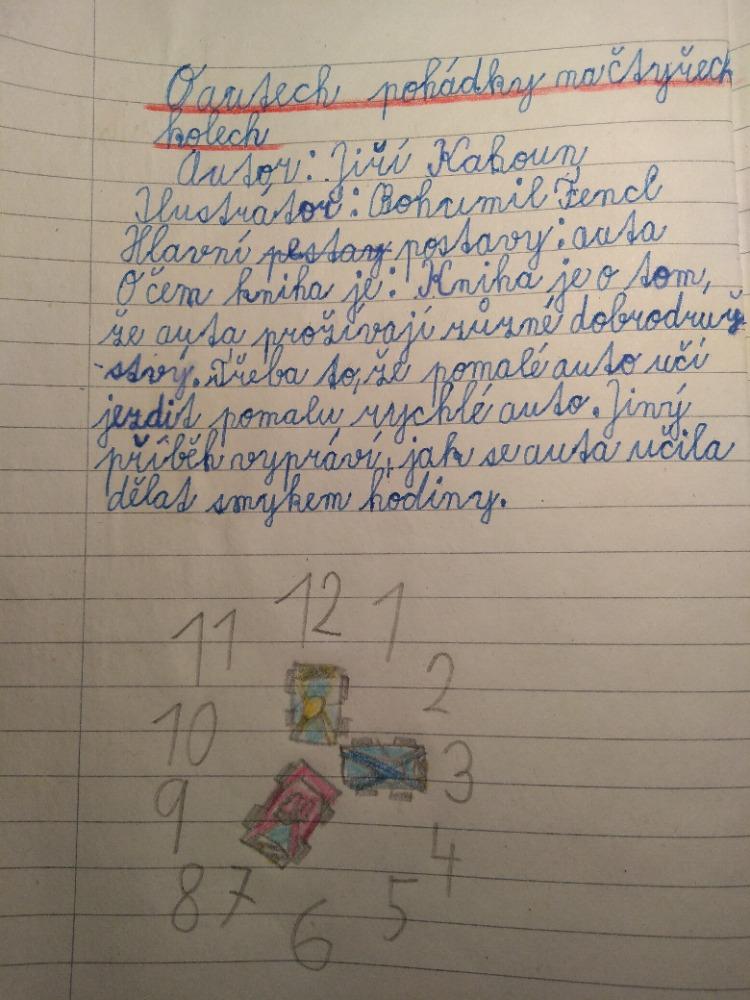 O autech pohádky na čtyřech
kolech
Autor: Jiří Kahoun
Ilustrátor: Bohumil Fencl
Hlavní pestay postavy: auta
O čem kniha je: Kniha je o tom,
že auta prožívají různé dobrodruž
-stvý. Třeba to, že pomalé auto učí
jezdit pomalu rychlé auto. Jiný
příběh vypráví, jak se auta učila
dělat smykem hodiny.
12
11 1
2
10
3
9
4
8 7 5
6